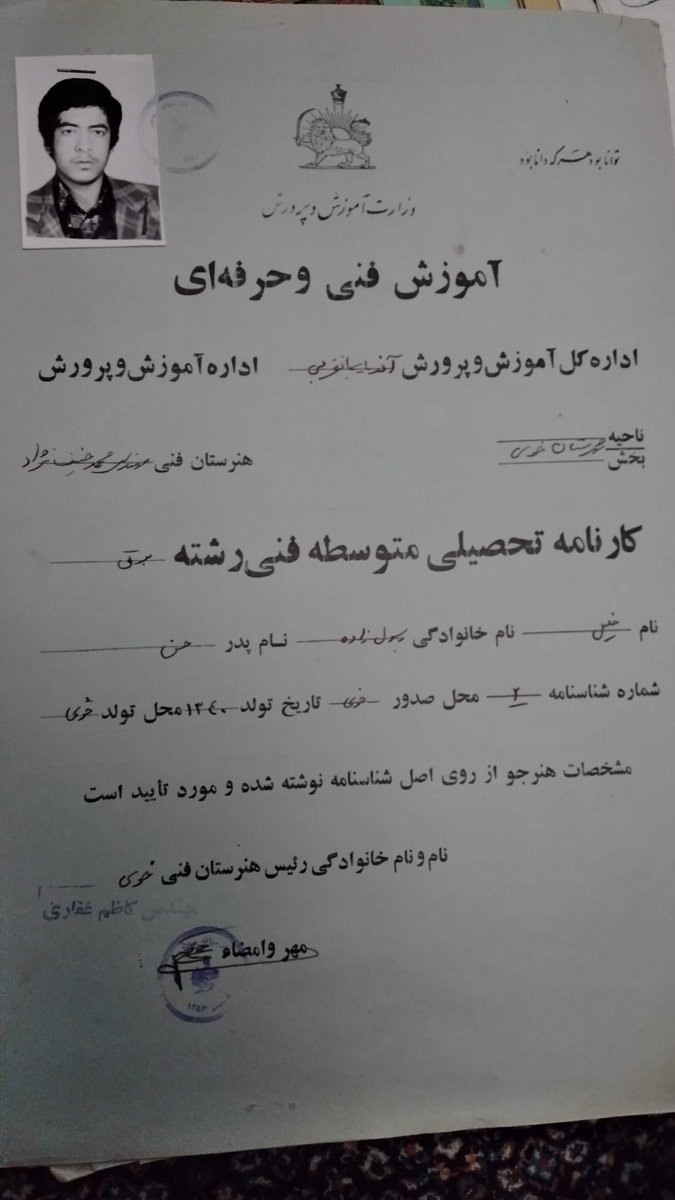 توانا بود هر که دانا بود
وزارت آموزش و پرورش
آموزش فنی و حرفه‌ای
اداره کل آموزش و پرورش آذربایجانغربی اداره آموزش و پرورش
ناحیه
بخش
شهرستان خوی
هنرستان فنی مهندس محمد حنیف نژاد
کارنامه تحصیلی متوسطه فنی رشته برق
نام نام خانوادگی رسول زاده نام پدر حسن
شماره شناسنامه ۲ محل صدور خوی تاریخ تولد ۱۳۴۰ محل تولد خوی
مشخصات هنرجو از روی اصل شناسنامه نوشته شده و مورد تأیید است
نام و نام خانوادگی رئیس هنرستان فنی خوی
مهندس کاظم غفاری
مهر و امضاء
۱۳۵۳